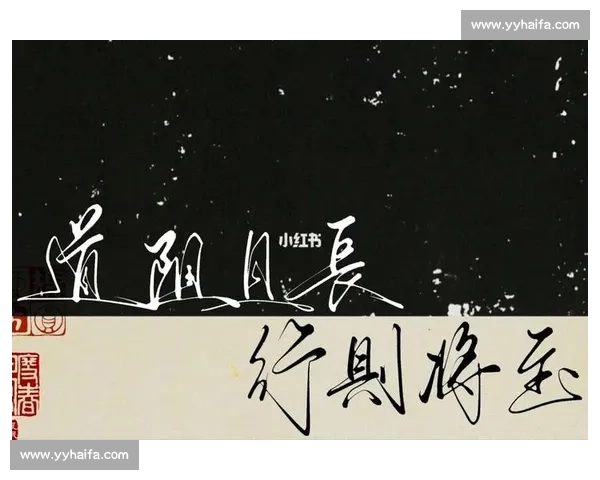 www.yyhaifa.com
小红书
道阻且長
行則将至
www.yyhaifa.com